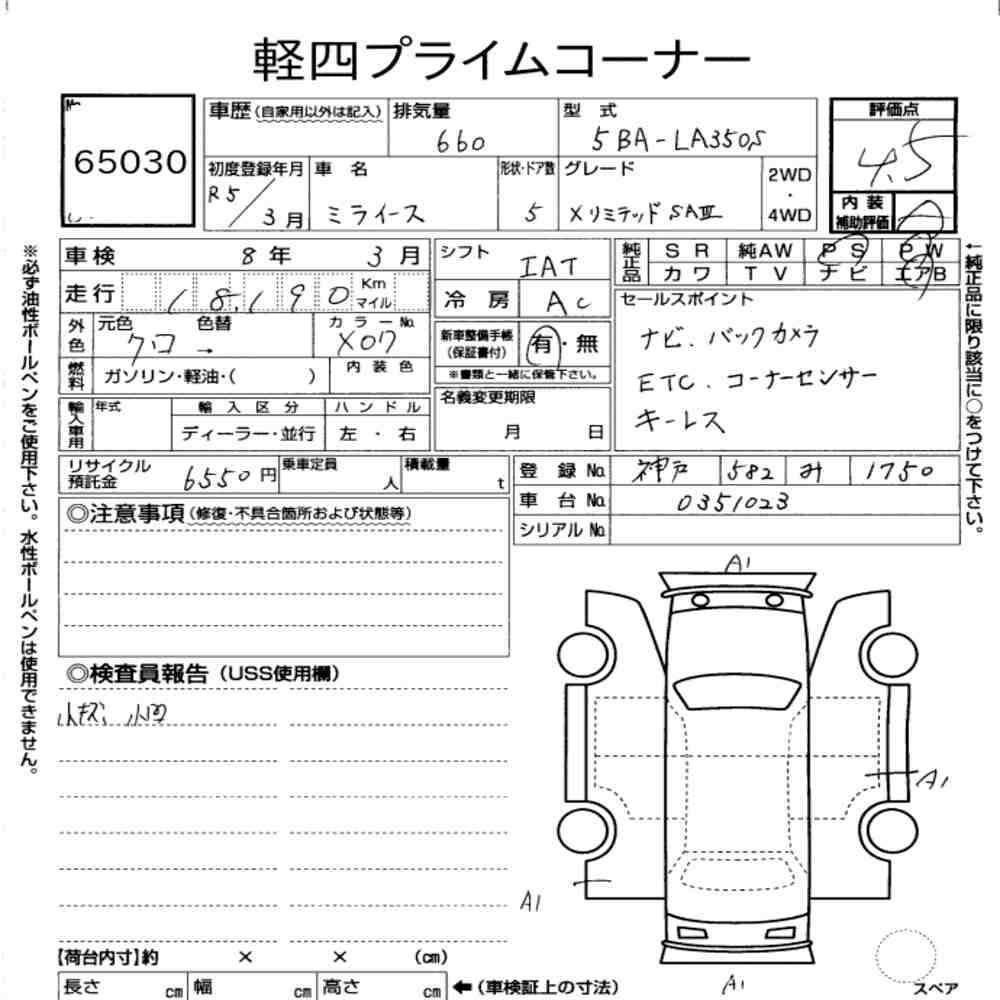 軽四プライムコーナー
No.
65030
車歴(自家用以外は記入) 排気量 型 式 評価点
660 5BA-LA350S 4.5
初度登録年月 車 名 形状・ドア数 グレード 2WD・4WD
R5/3月 ミライース 5 XリミテッドSAⅢ
内 装 補助評価 A
車検 8年 3月 シフト IAT
純正品 S R 純AW P S P W
カ ワ T V ナ ビ エアB
走行 18,190 Km マイル 冷 房 AC
セールスポイント
外色 元色 色替 カ ラ ー No. 新車整備手帳(保証書付) 有・無
クロ → X07
※書類と一緒に保管下さい。
ナビ.バックカメラ
ETC.コーナーセンサー
キーレス
燃料 ガソリン・軽油・( ) 内 装 色
名義変更期限
月 日
輸入車用 年式 輸 入 区 分 ハ ン ド ル
ディーラー・並行 左 ・ 右
リサイクル預託金 6550円 乗車定員 人 積載量 t
登 録 No. 神戸 582 み 1750
車 台 No. 0351023
シリアル No.
◎注意事項(修復・不具合箇所および状態等)
◎検査員報告(USS使用欄)
小キズ、小凹
A1
A1
A1
A1
【荷台内寸】約 × × (cm)
長さ cm 幅 cm 高さ cm ←(車検証上の寸法) スペア
※必ず油性ボールペンをご使用下さい。水性ボールペンは使用できません。
←純正品に限り該当に○をつけて下さい。